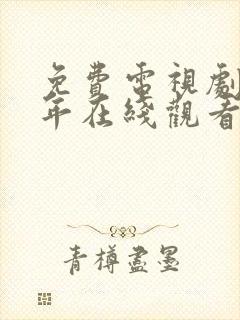 免費電視劇
年在綫觀看
青樽盡墨